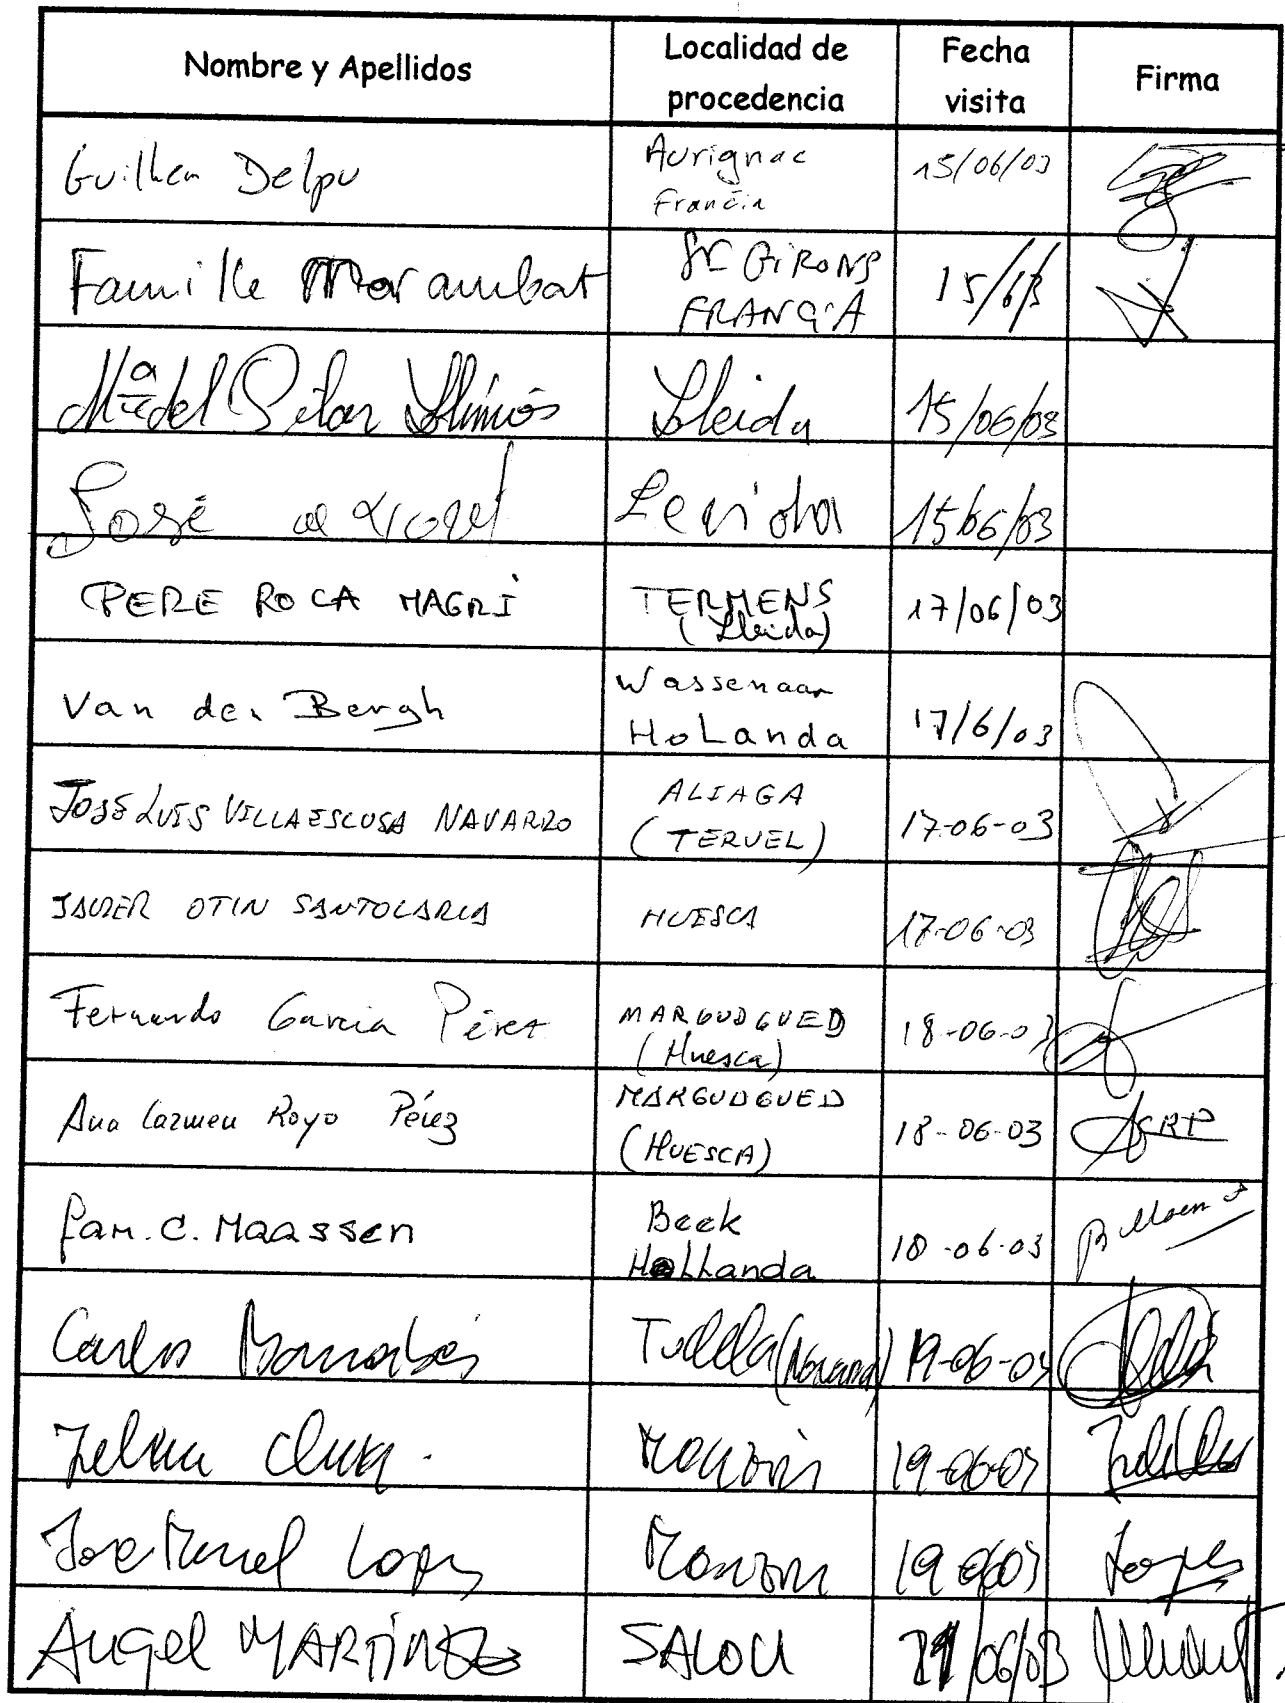 Nombre y Apellidos Localidad de procedencia Fecha visita Firma
Guilhem Delpu Aurignac Francia 15/06/03
Famille Marambat St GiRONS FRANCIA 15/6/3
Mª del Pilar Llimós Lleida 15/06/03
José Lerida 15/06/03
PERE ROCA MAGRI TERMENS (Lleida) 17/06/03
Van der Bergh Wassenaar HoLanda 17/6/03
JOSÉ LUIS VILLAESCUSA NAVARRO ALIAGA (TERUEL) 17-06-03
JAVIER OTIN SANTOLARIA HUESCA 17-06-03
Fernando Garcia Pérez MARGUDGUED (Huesca) 18-06-03
Ana Carmen Royo Pérez MARGUDGUED (HUESCA) 18-06-03 ACRP
fam. C. Maassen Beek HoLLanda 18-06-03
Carlos Barrabés Tudela (Navarra) 19-06-03
Monzón 19-06-03
Jose Manuel Lopez Monzon 19-06-03 Lopez
Angel MARTÍNEZ SALOU /06/03